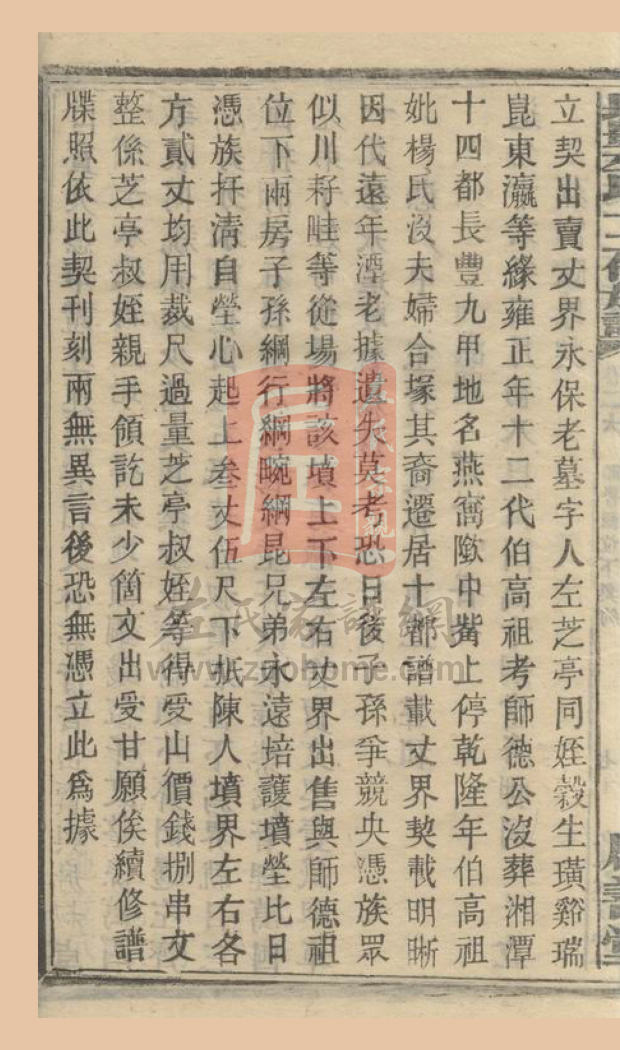 立契出賣丈界永保老墓字人左芝亭同姪穀生璜谿瑞
崑東瀛等緣雍正年十二代伯高祖考師德公沒葬湘潭
十四都長豐九甲地名燕窩隞中嘴上停乾隆年伯高祖
妣楊氏沒夫婦合塚其裔遷居十都譜載丈界契載明晰
因代遠年湮老據遺失莫考恐日後子孫爭競央憑族眾
似川籽畦等從場將該墳上下左右丈界出售與師德祖
位下兩房子孫綱行綱畹綱昆兄弟永遠培護墳塋比日
憑族扦清自塋心起上叁丈伍尺下抵陳人墳界左右各
方貳丈均用裁尺過量芝亭叔姪等得受山價錢捌串文
整係芝亭叔姪親手領訖未少箇文出受甘願俟續修譜
牒照依此契刊刻兩無異言後恐無憑立此爲據
左氏家譜網
www.zuohome.com